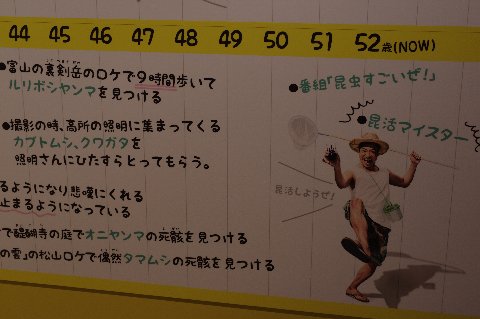 44 45 46 47 48 49 50 51 52歳(NOW)
●富山の裏剣岳のロケで9時間歩いて
ルリボシヤンマを見つける
●番組「昆虫すごいぜ！」
●昆活マイスター
●撮影の時、高所の照明に集まってくる
カブトムシ、クワガタを
照明さんにひたすらとってもらう。
昆活しようぜ！
るようになり悲嘆にくれる
止まるようになっている
で醍醐寺の庭でオニヤンマの死骸を見つける
の雲」の松山ロケで偶然タマムシの死骸を見つける